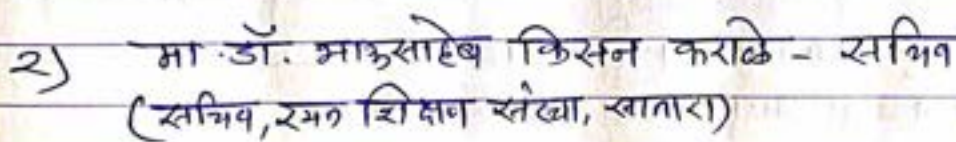 २) मा. डॉ. भाऊसाहेब किसन कराळे - सचिव
(सचिव, रयत शिक्षण संस्था, सातारा)